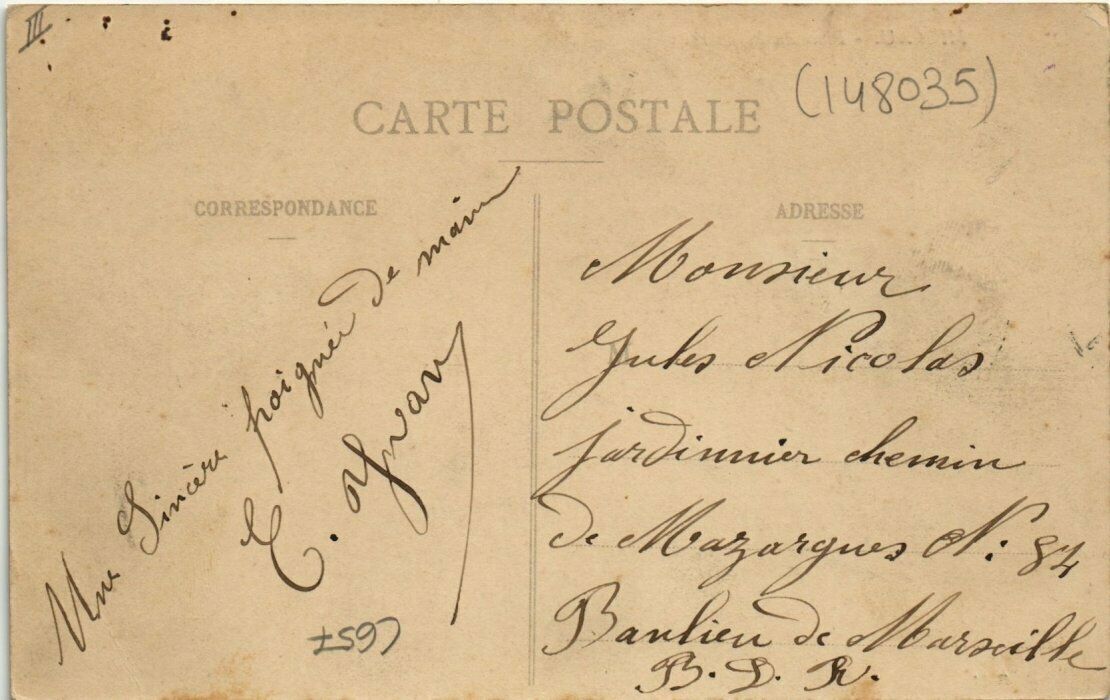 III
(148035)
CARTE POSTALE
CORRESPONDANCE
Une Sincère poignée de main
C. Yvan
C657
ADRESSE
Monsieur
Jules Nicolas
jardinnier chemin
de Mazargues N: 84
Banlieu de Marseille
B. D. R.